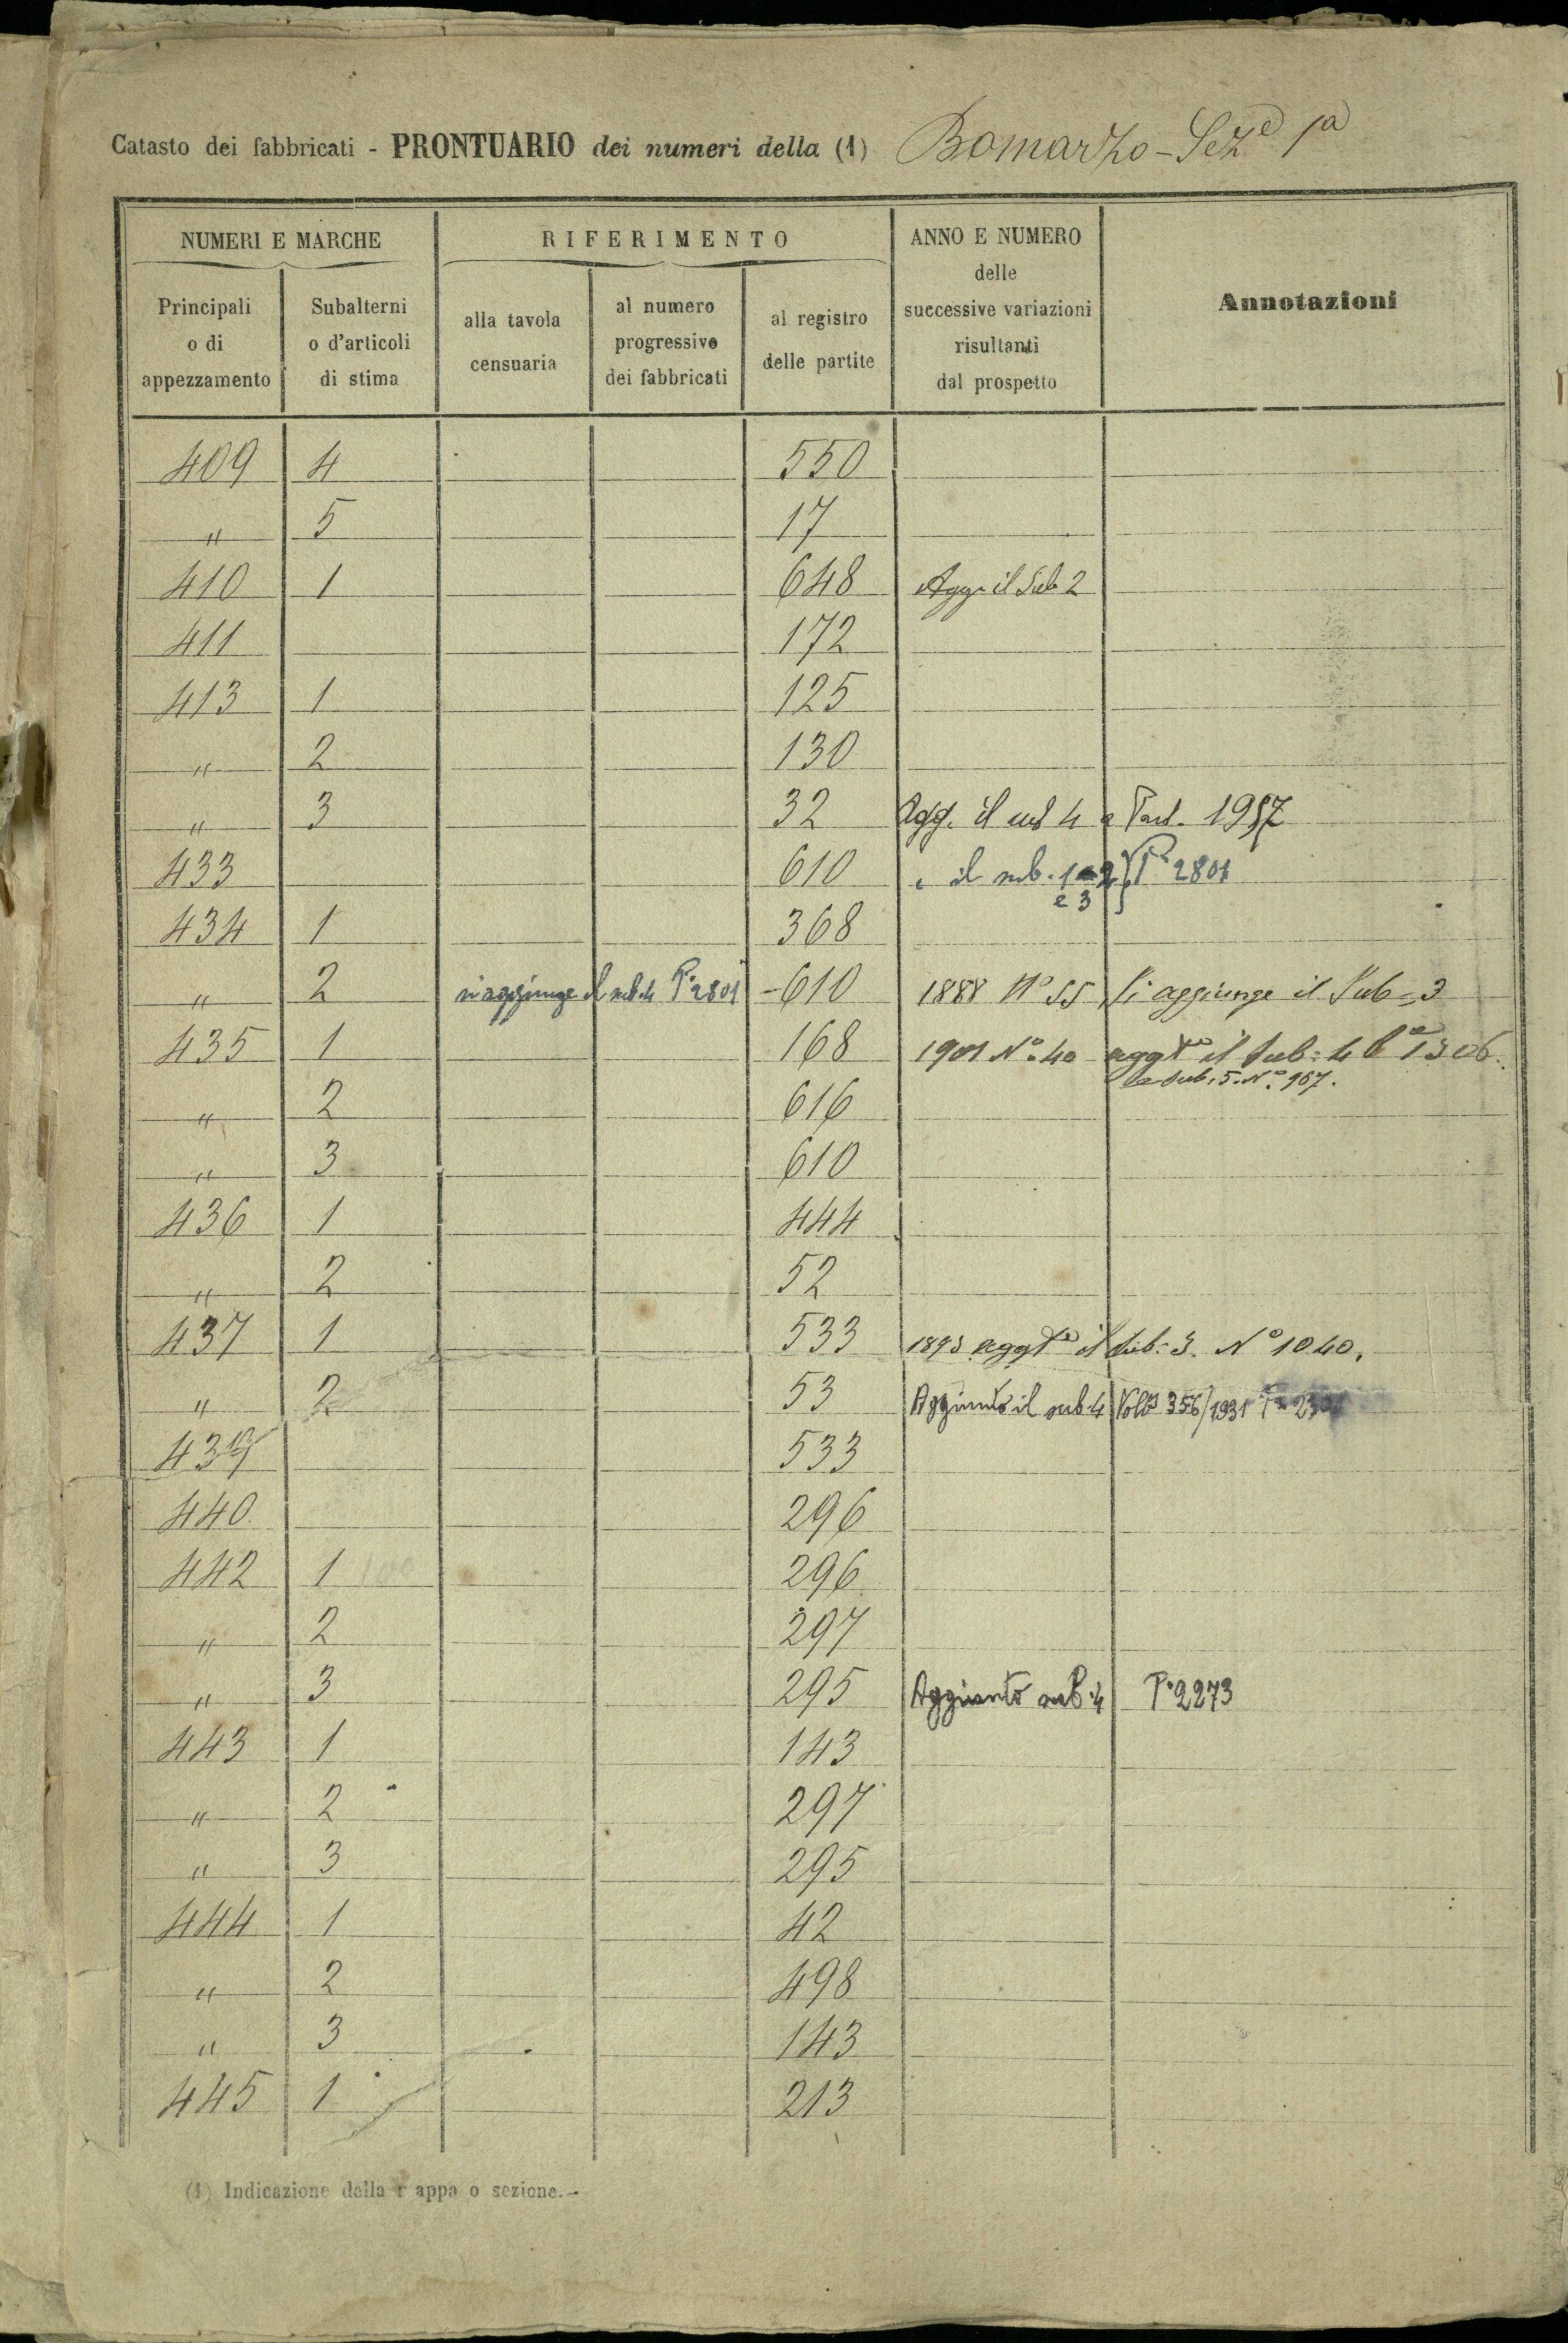 Catasto dei fabbricati - PRONTUARIO dei numeri della (1) Bomarzo - Sez.e 1a
NUMERI E MARCHE
RIFERIMENTO
ANNO E NUMERO
delle
successive variazioni
risultanti
dal prospetto
Annotazioni
Principali
o di
appezzamento
Subalterni
o d'articoli
di stima
alla tavola
censuaria
al numero
progressivo
dei fabbricati
al registro
delle partite
409 4 550
" 5 17
410 1 648 Agg. il Sub 2
411 172
413 1 125
" 2 130
" 3 32 Agg. il sub 4 a Part. 1957
433 610 il sub. 1 2 P. 2801
e 3
434 1 368
" 2 si aggiunge il sub. 4 P. 2801 - 610 1888 No 55 Si aggiunge il Sub = 3
435 1 168 1901 No. 40 aggto il Sub: 4 1306.
Sub: 5. No. 967.
" 2 616
" 3 610
436 1 444
" 2 52
437 1 533 1893 aggto il Sub: 3. No 1040.
" 2 53 Aggiunto il sub. 4 356/1931
439 533
440 296
442 1 296
" 2 297
" 3 295 Aggiunto sub. 4 P. 2273
443 1 143
" 2 297
" 3 295
444 1 42
" 2 498
" 3 143
445 1 213
(1) Indicazione dalla r appa o sezione.-